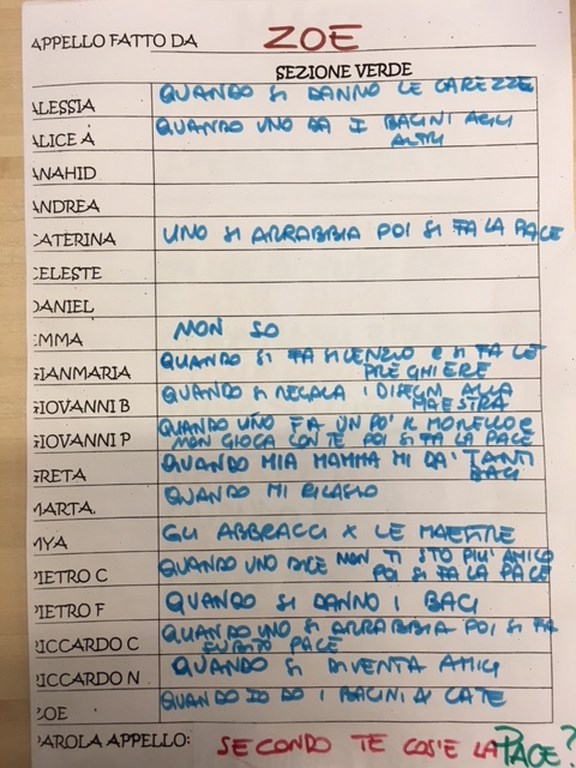 APPELLO FATTO DA ZOE
SEZIONE VERDE
ALESSIA QUANDO SI DANNO LE CAREZZE
ALICE A QUANDO UNO DA I BACINI AGLI
ALTRI
ANAHID
ANDREA
CATERINA UNO SI ARRABBIA POI SI FA LA PACE
CELESTE
DANIEL
EMMA NON SO
GIANMARIA QUANDO SI FA SILENZIO E SI FA LE
PREGHIERE
GIOVANNI B QUANDO SI REGALA I DISEGNI ALLA
MAESTRA
GIOVANNI P QUANDO UNO FA UN PO' IL MONELLO E
NON GIOCA CON TE POI SI FA LA PACE
GRETA QUANDO MIA MAMMA MI DA' TANTI
BACI
MARTA. QUANDO MI
MYA GLI ABBRACCI X LE MAESTRE
PIETRO C QUANDO UNO DICE NON TI STO PIU' AMICO
POI SI FA LA PACE
PIETRO F QUANDO SI DANNO I BACI
RICCARDO C QUANDO UNO SI ARRABBIA POI SI FA
SUBITO PACE
RICCARDO N QUANDO SI DIVENTA AMICI
ZOE QUANDO IO DO I BACINI A CATE
PAROLA APPELLO: SECONDO TE COS'E LA PACE?